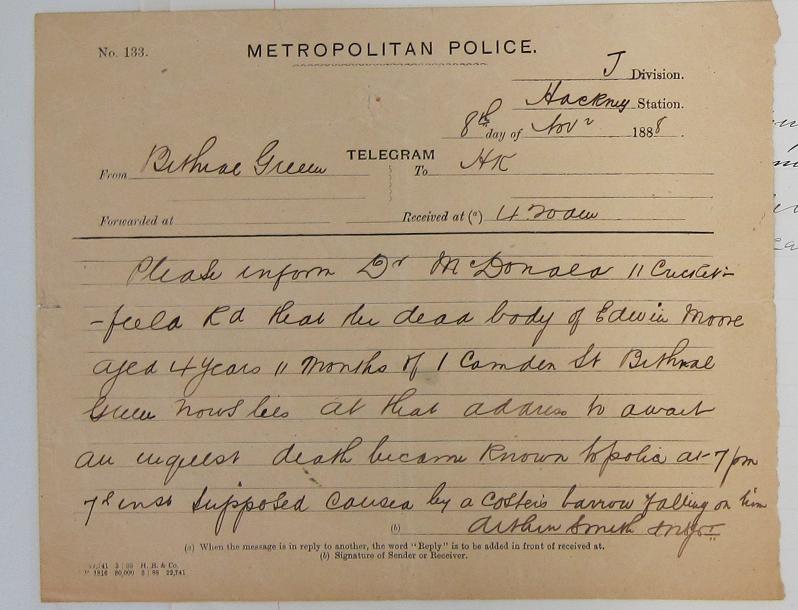 No. 133. METROPOLITAN POLICE.
J Division.
Hackney Station.
8th day of Novr 1888.
TELEGRAM
From Bethnal Green To HK
Forwarded at Received at (a) 4 20am
Please inform Dr McDonald 11 Cricket-
-field Rd that the dead body of Edwin Moore
aged 4 years 11 months of 1 Camden St Bethnal
Green now lies at that address to await
an inquest death became known to police at 7 pm
7th inst supposed caused by a costers barrow falling on him
(b) Arthur Smith Inspr
(a) When the message is in reply to another, the word "Reply" is to be added in front of received at.
(b) Signature of Sender or Receiver.
H. B. & Co.
1816 80,000 3 | 88 22,741